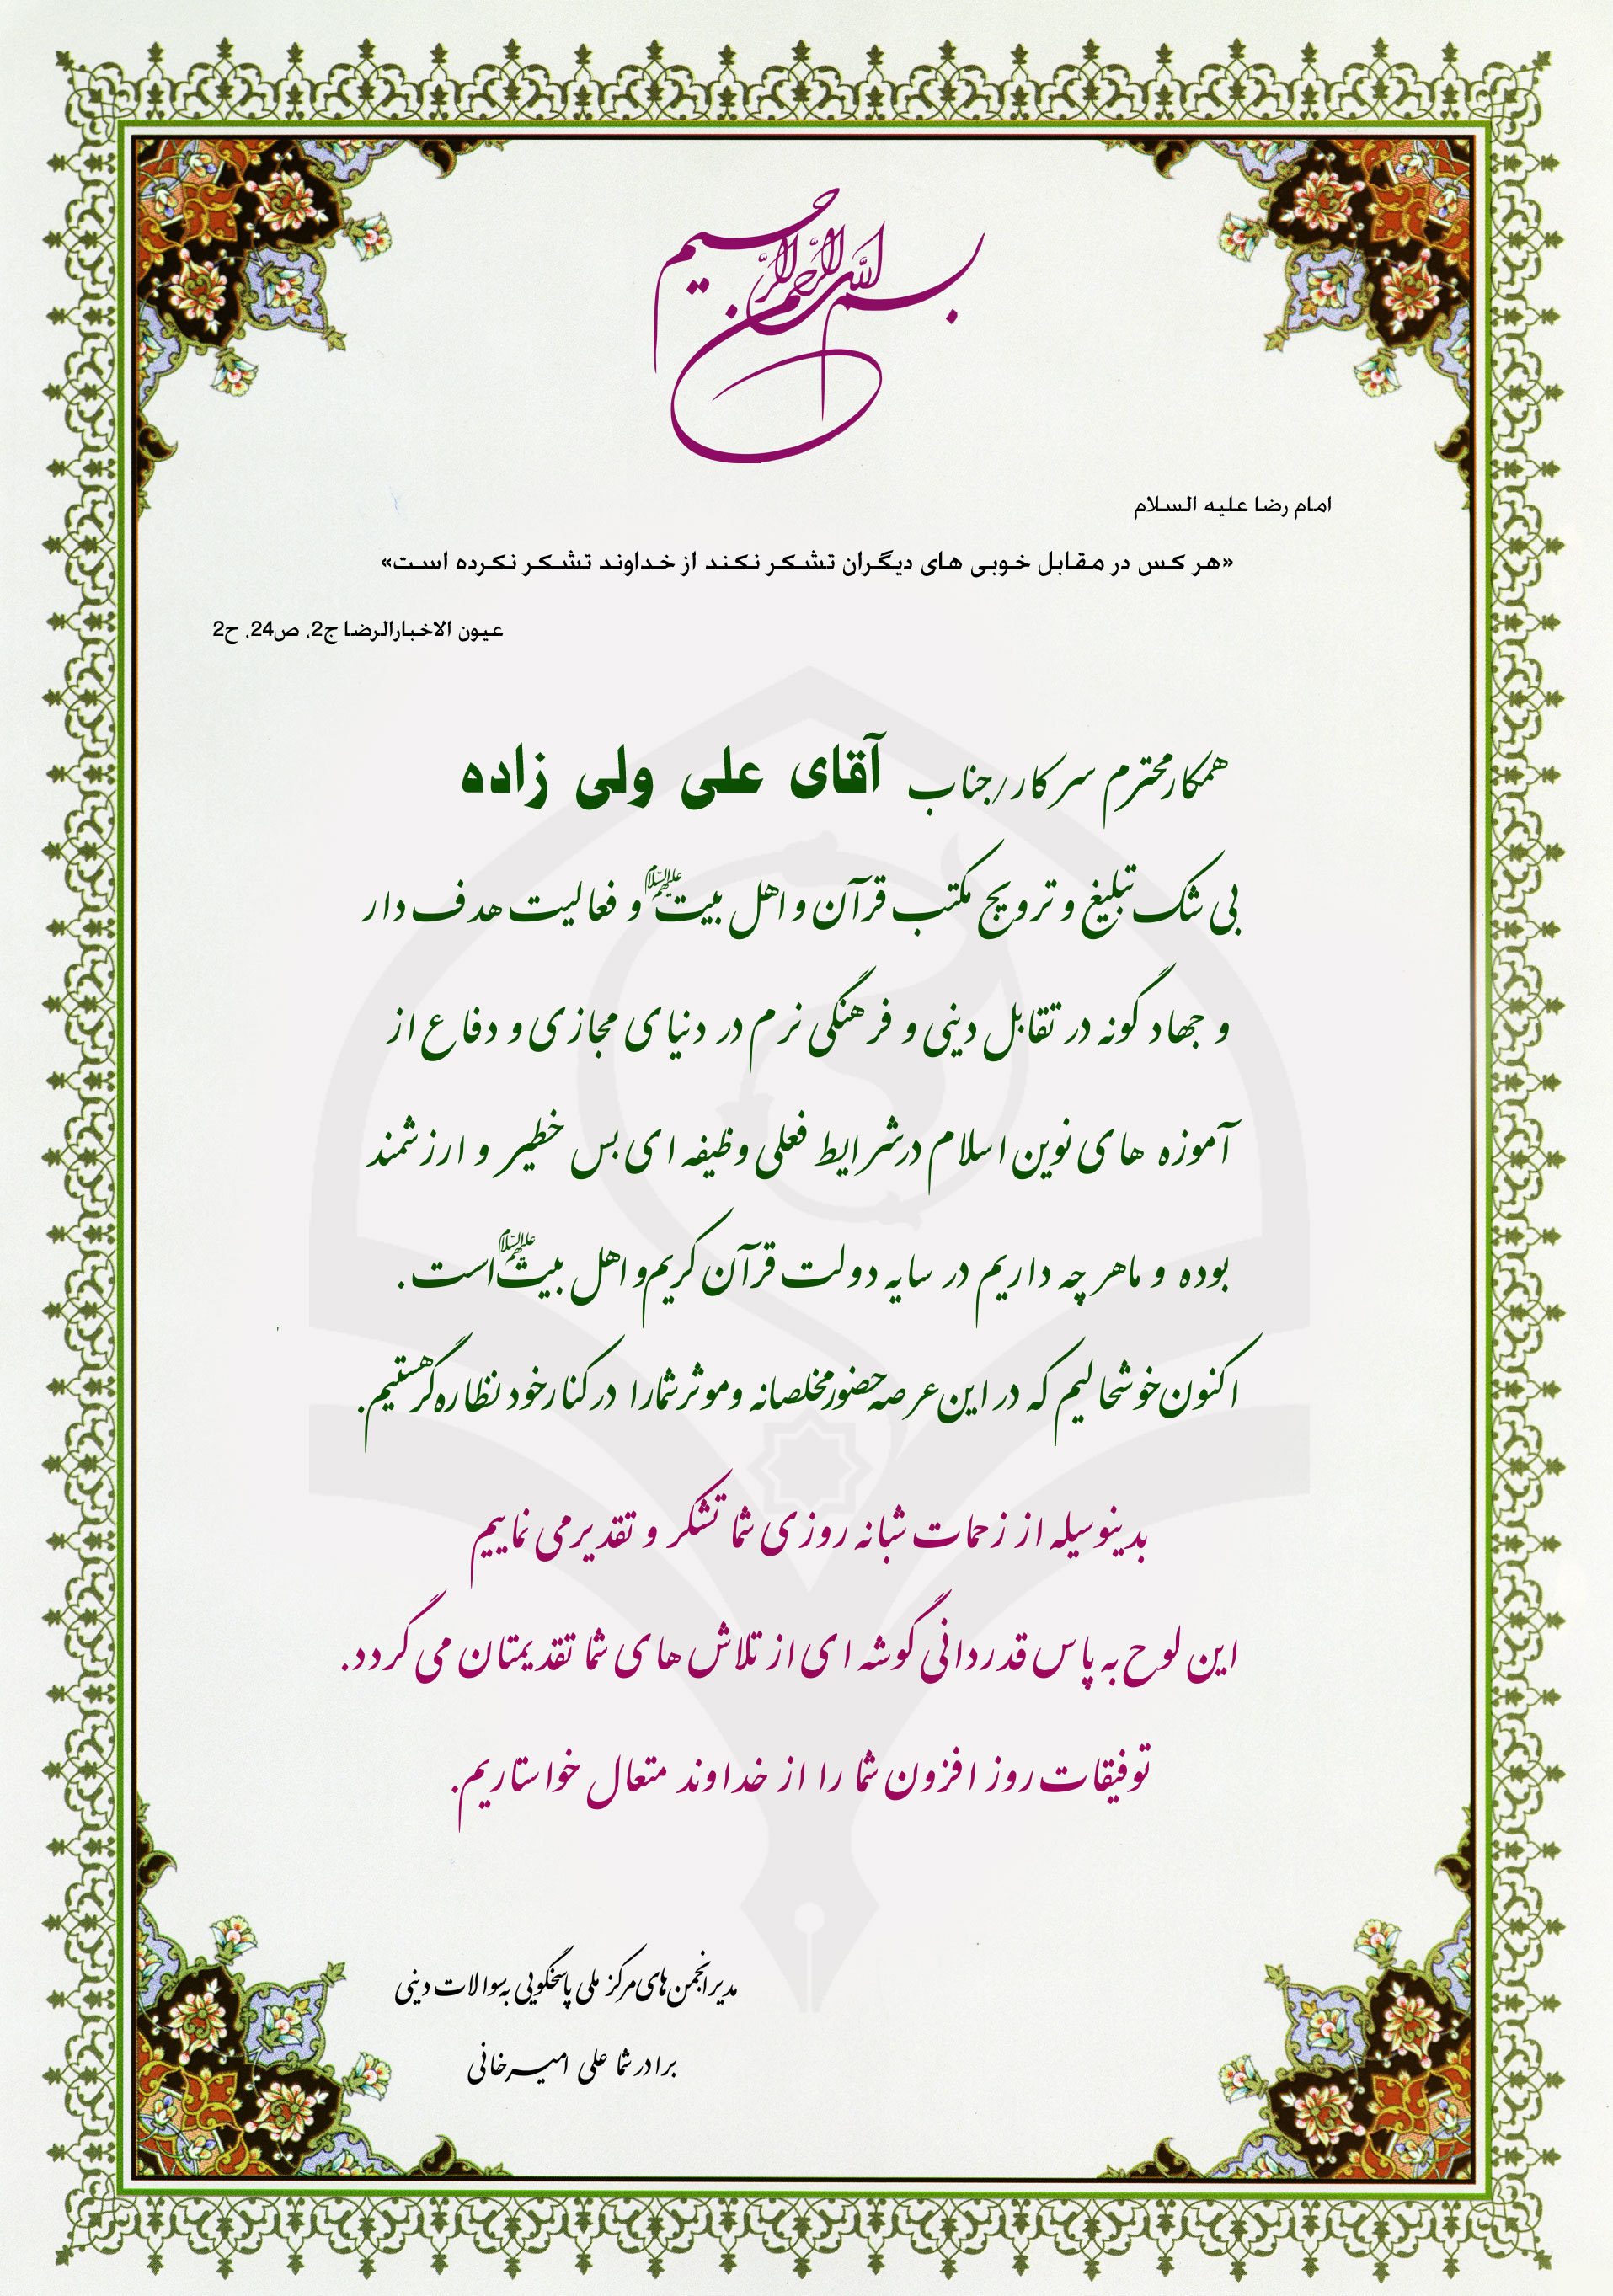 بسم الله الرحمن الرحیم
امام رضا علیه السلام
«هر کس در مقابل خوبی های دیگران تشکر نکند از خداوند تشکر نکرده است»
عیون الاخبارالرضا ج2، ص24، ح2
همکارمحترم سرکار/جناب آقای علی ولی زاده
بی شک تبلیغ و ترویج مکتب قرآن و اهل بیت علیهم السلام و فعالیت هدف دار
و جهاد گونه در تقابل دینی و فرهنگی نرم در دنیای مجازی و دفاع از
آموزه های نوین اسلام درشرایط فعلی وظیفه ای بس خطیر و ارزشمند
بوده و ماهر چه داریم در سایه دولت قرآن کریم و اهل بیت علیهم السلام است.
اکنون خوشحالیم که در این عرصه حضورمخلصانه وموثرشمارا درکنارخود نظاره گرهستیم.
بدینوسیله از زحمات شبانه روزی شما تشکر و تقدیرمی نماییم
این لوح به پاس قدردانی گوشه ای از تلاش های شما تقدیمتان می گردد.
توفیقات روز افزون شما را از خداوند متعال خواستاریم.
مدیرانجمن های مرکز ملی پاسخگویی به سوالات دینی
برادر شما علی امیرخانی